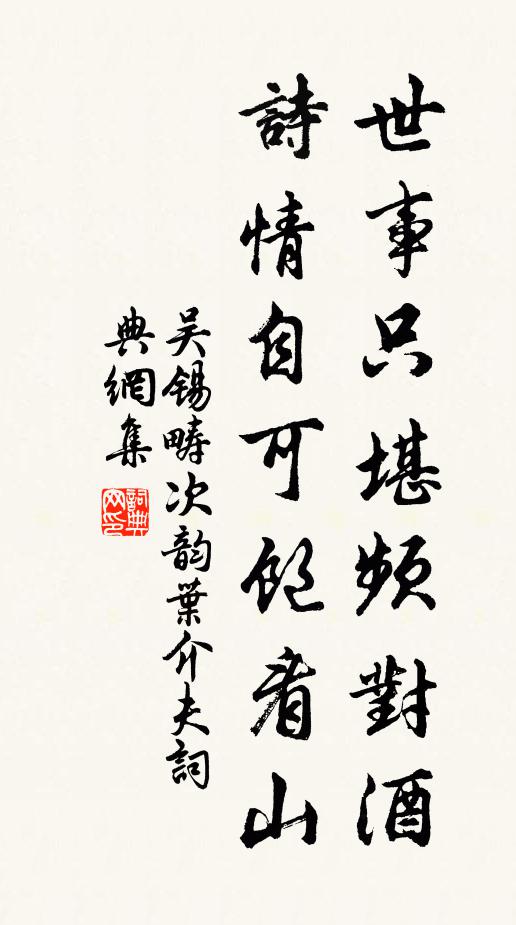 世事只堪頻對酒
詩情自可飽看山
吳錫疇次韵葉介夫詞
典網集
詞典网印